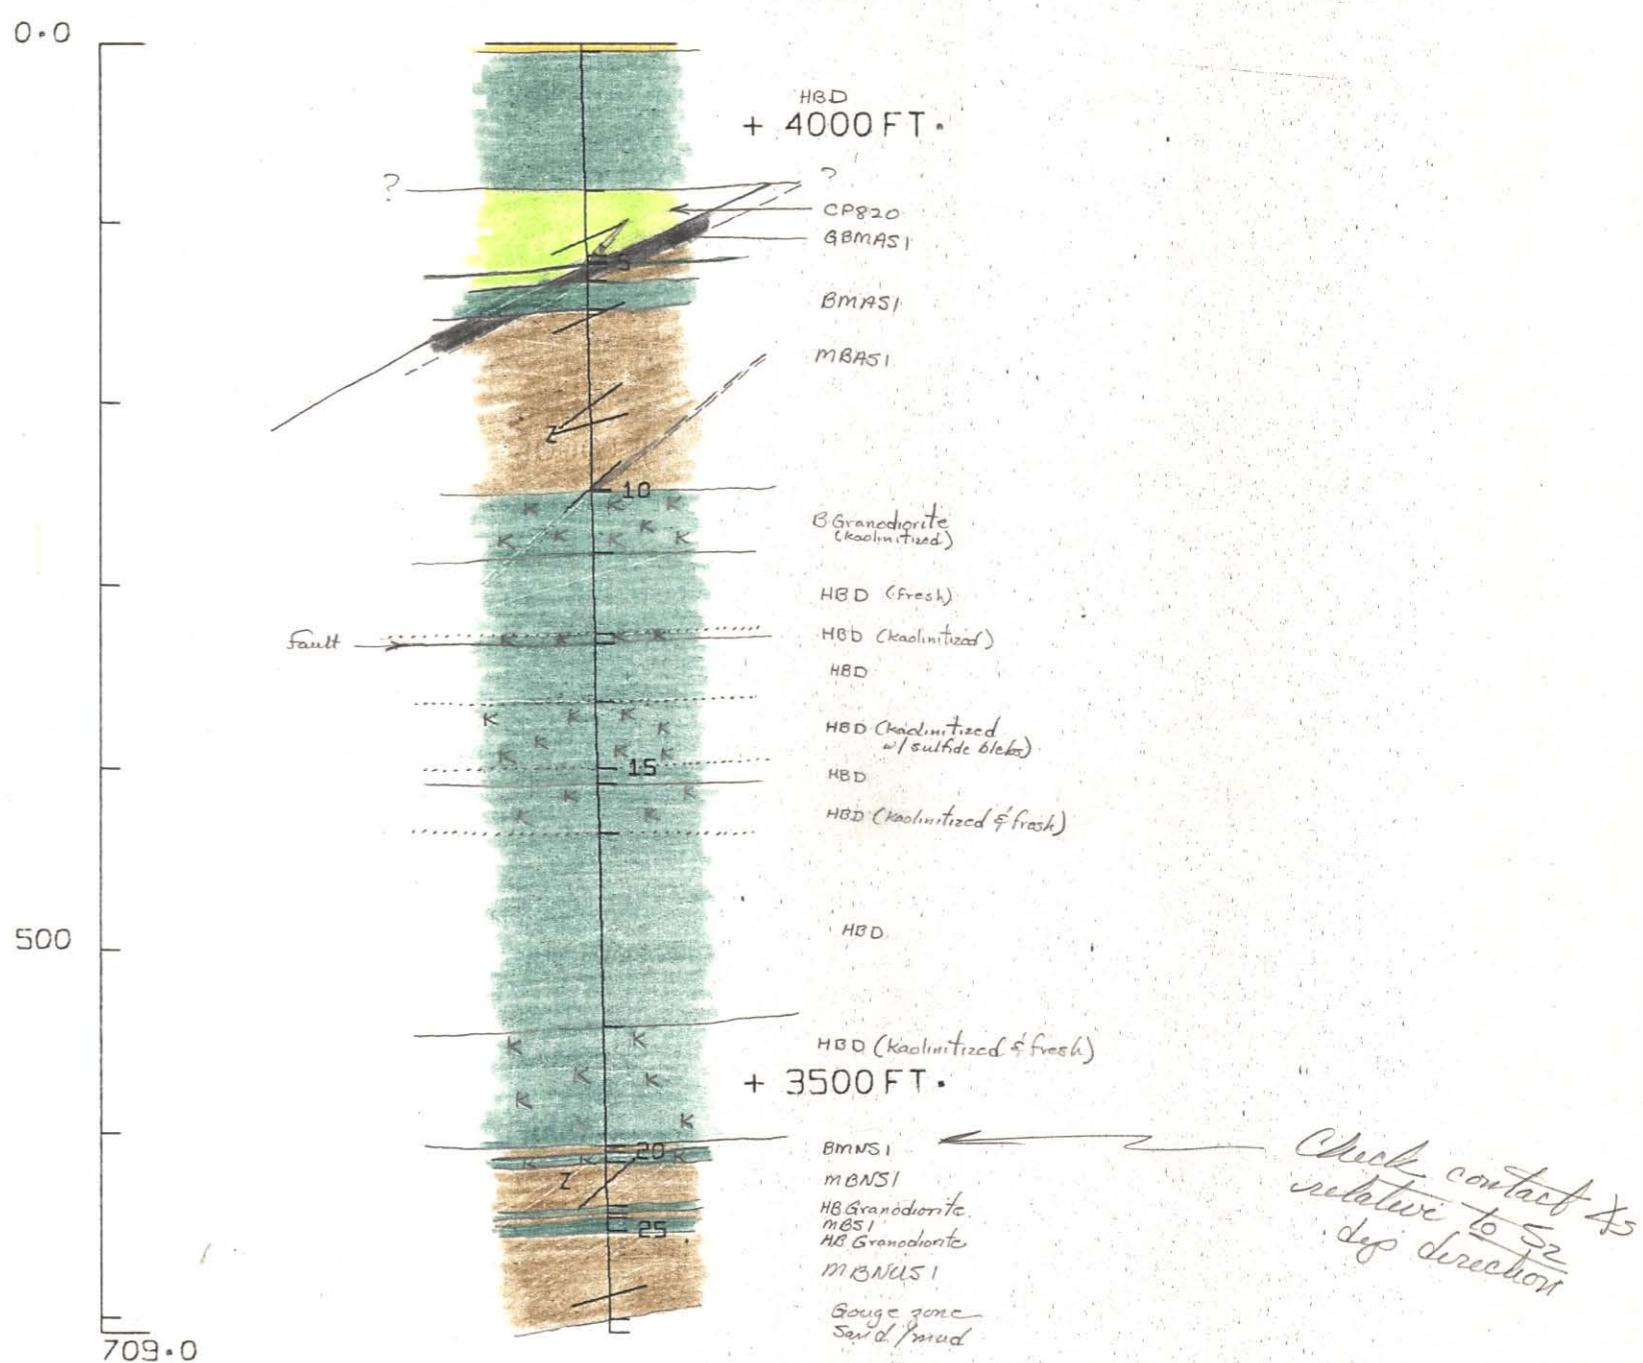 0.0
HBD
+ 4000 FT.
? ?
CP820
GBMAS1
5
BMAS1
MBAS1
Z
10
K K K
K
K K K K
B Granodiorite
(kaolinitized)
HBD (fresh)
Fault
K K K K
HBD (kaolinitized)
HBD
K K K K
K K K K
HBD (kaolinitized
w/ sulfide blebs)
15
HBD
K K
K K
HBD (kaolinitized & fresh)
500
HBD
K K
HBD (kaolinitized & fresh)
K K
+ 3500 FT.
K
K K
20
BMNS1
K K
Z
MBNS1
HB Granodiorite
MBS1
25
HB Granodiorite
MBNUS1
Gouge zone
Sand/mud
709.0
Check contact ∡s
relative to S2
dip direction